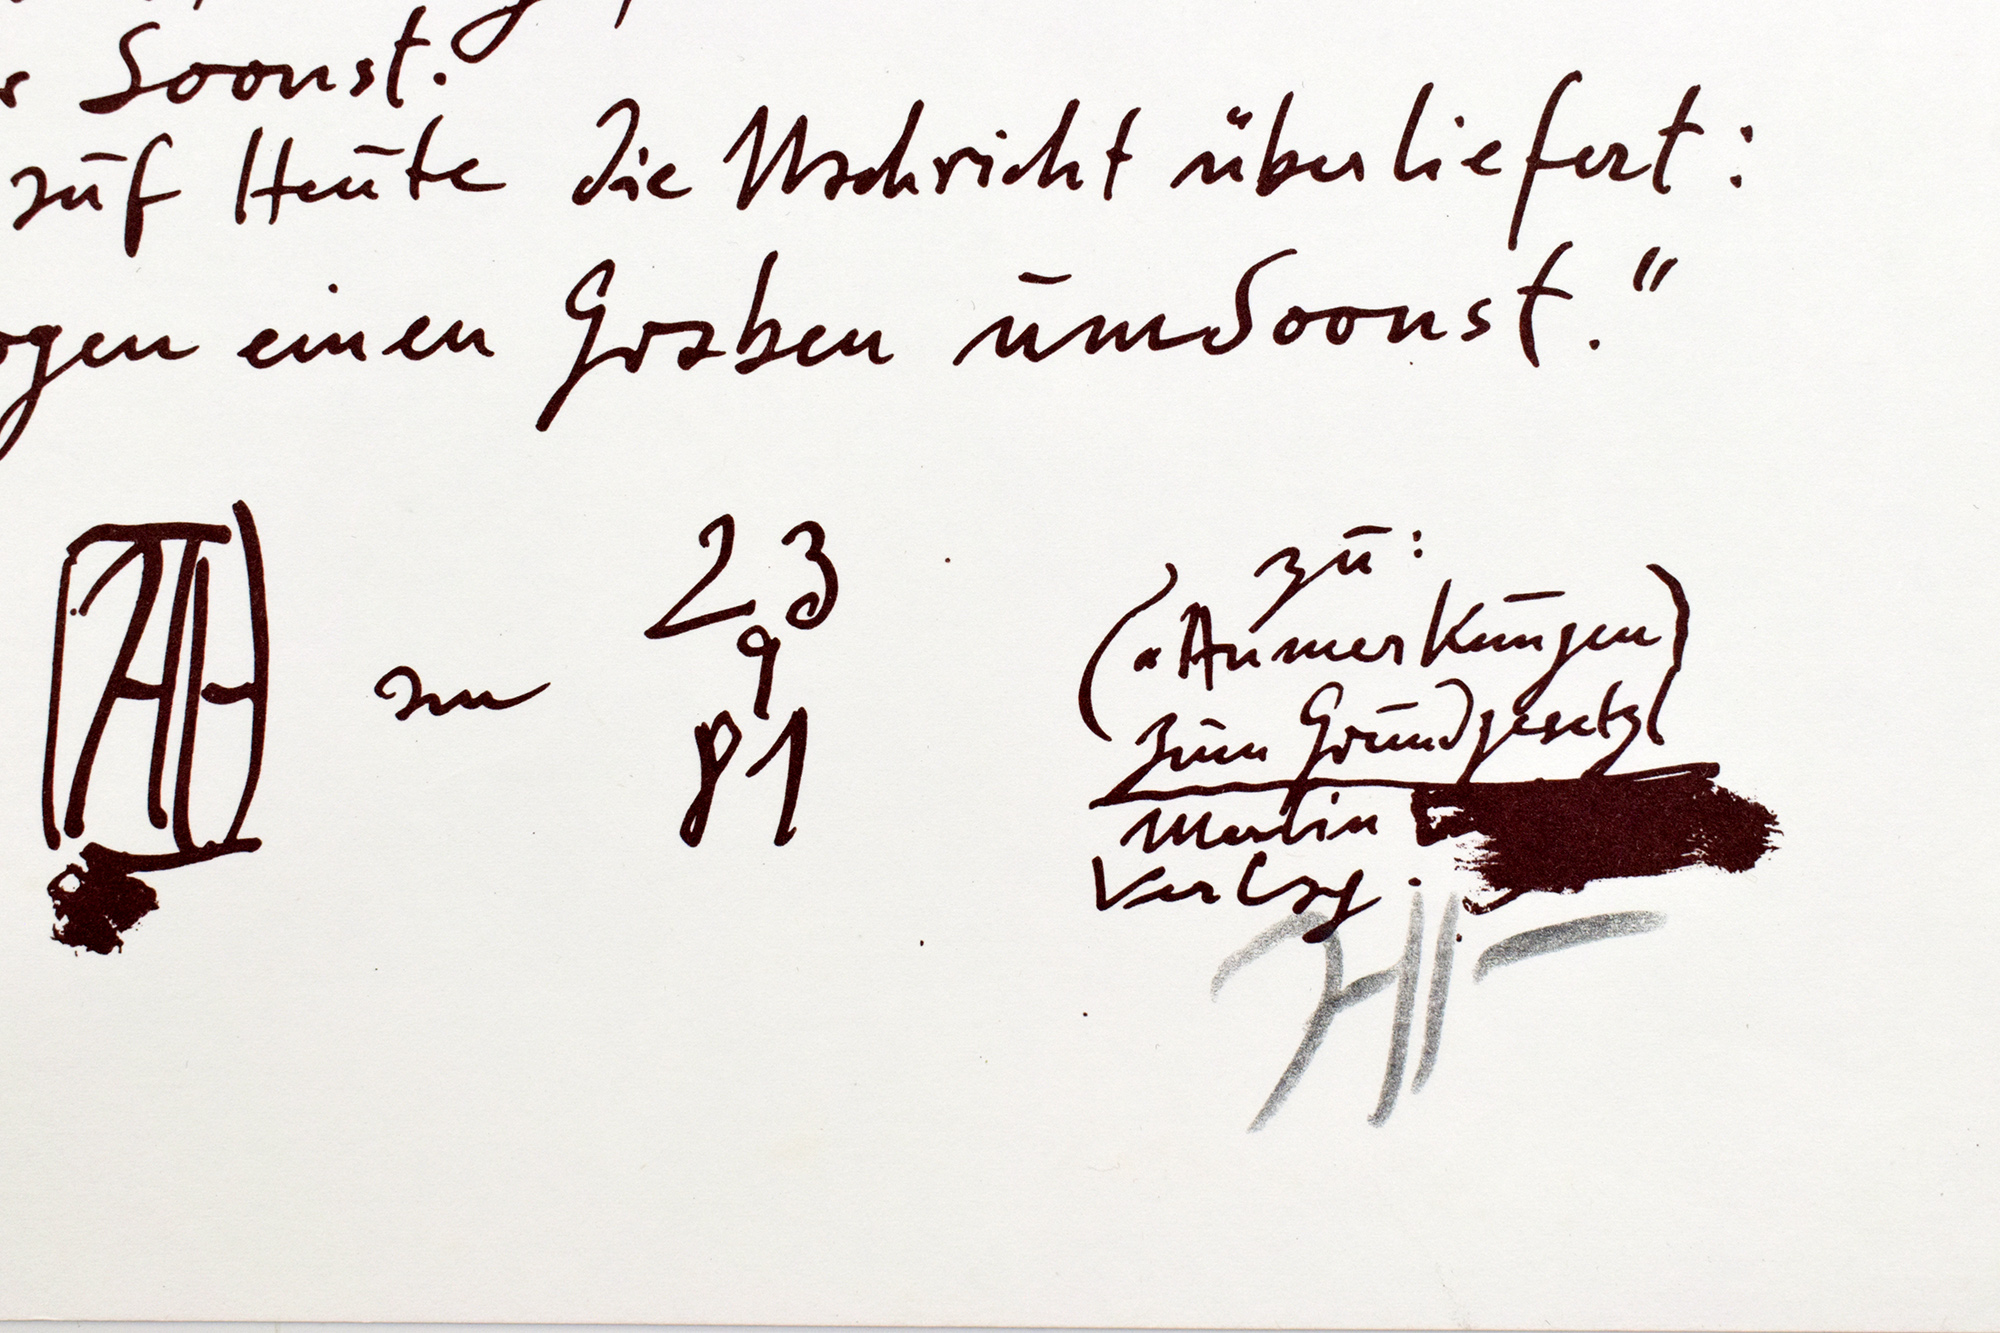 Soonst.
auf Heute die Nachricht überliefert:
ogen einen Graben umsoonst."
AH am 23 9 81
zu:
("Anmerkungen
zum Grundgesetz)
Merlin
Verlag.